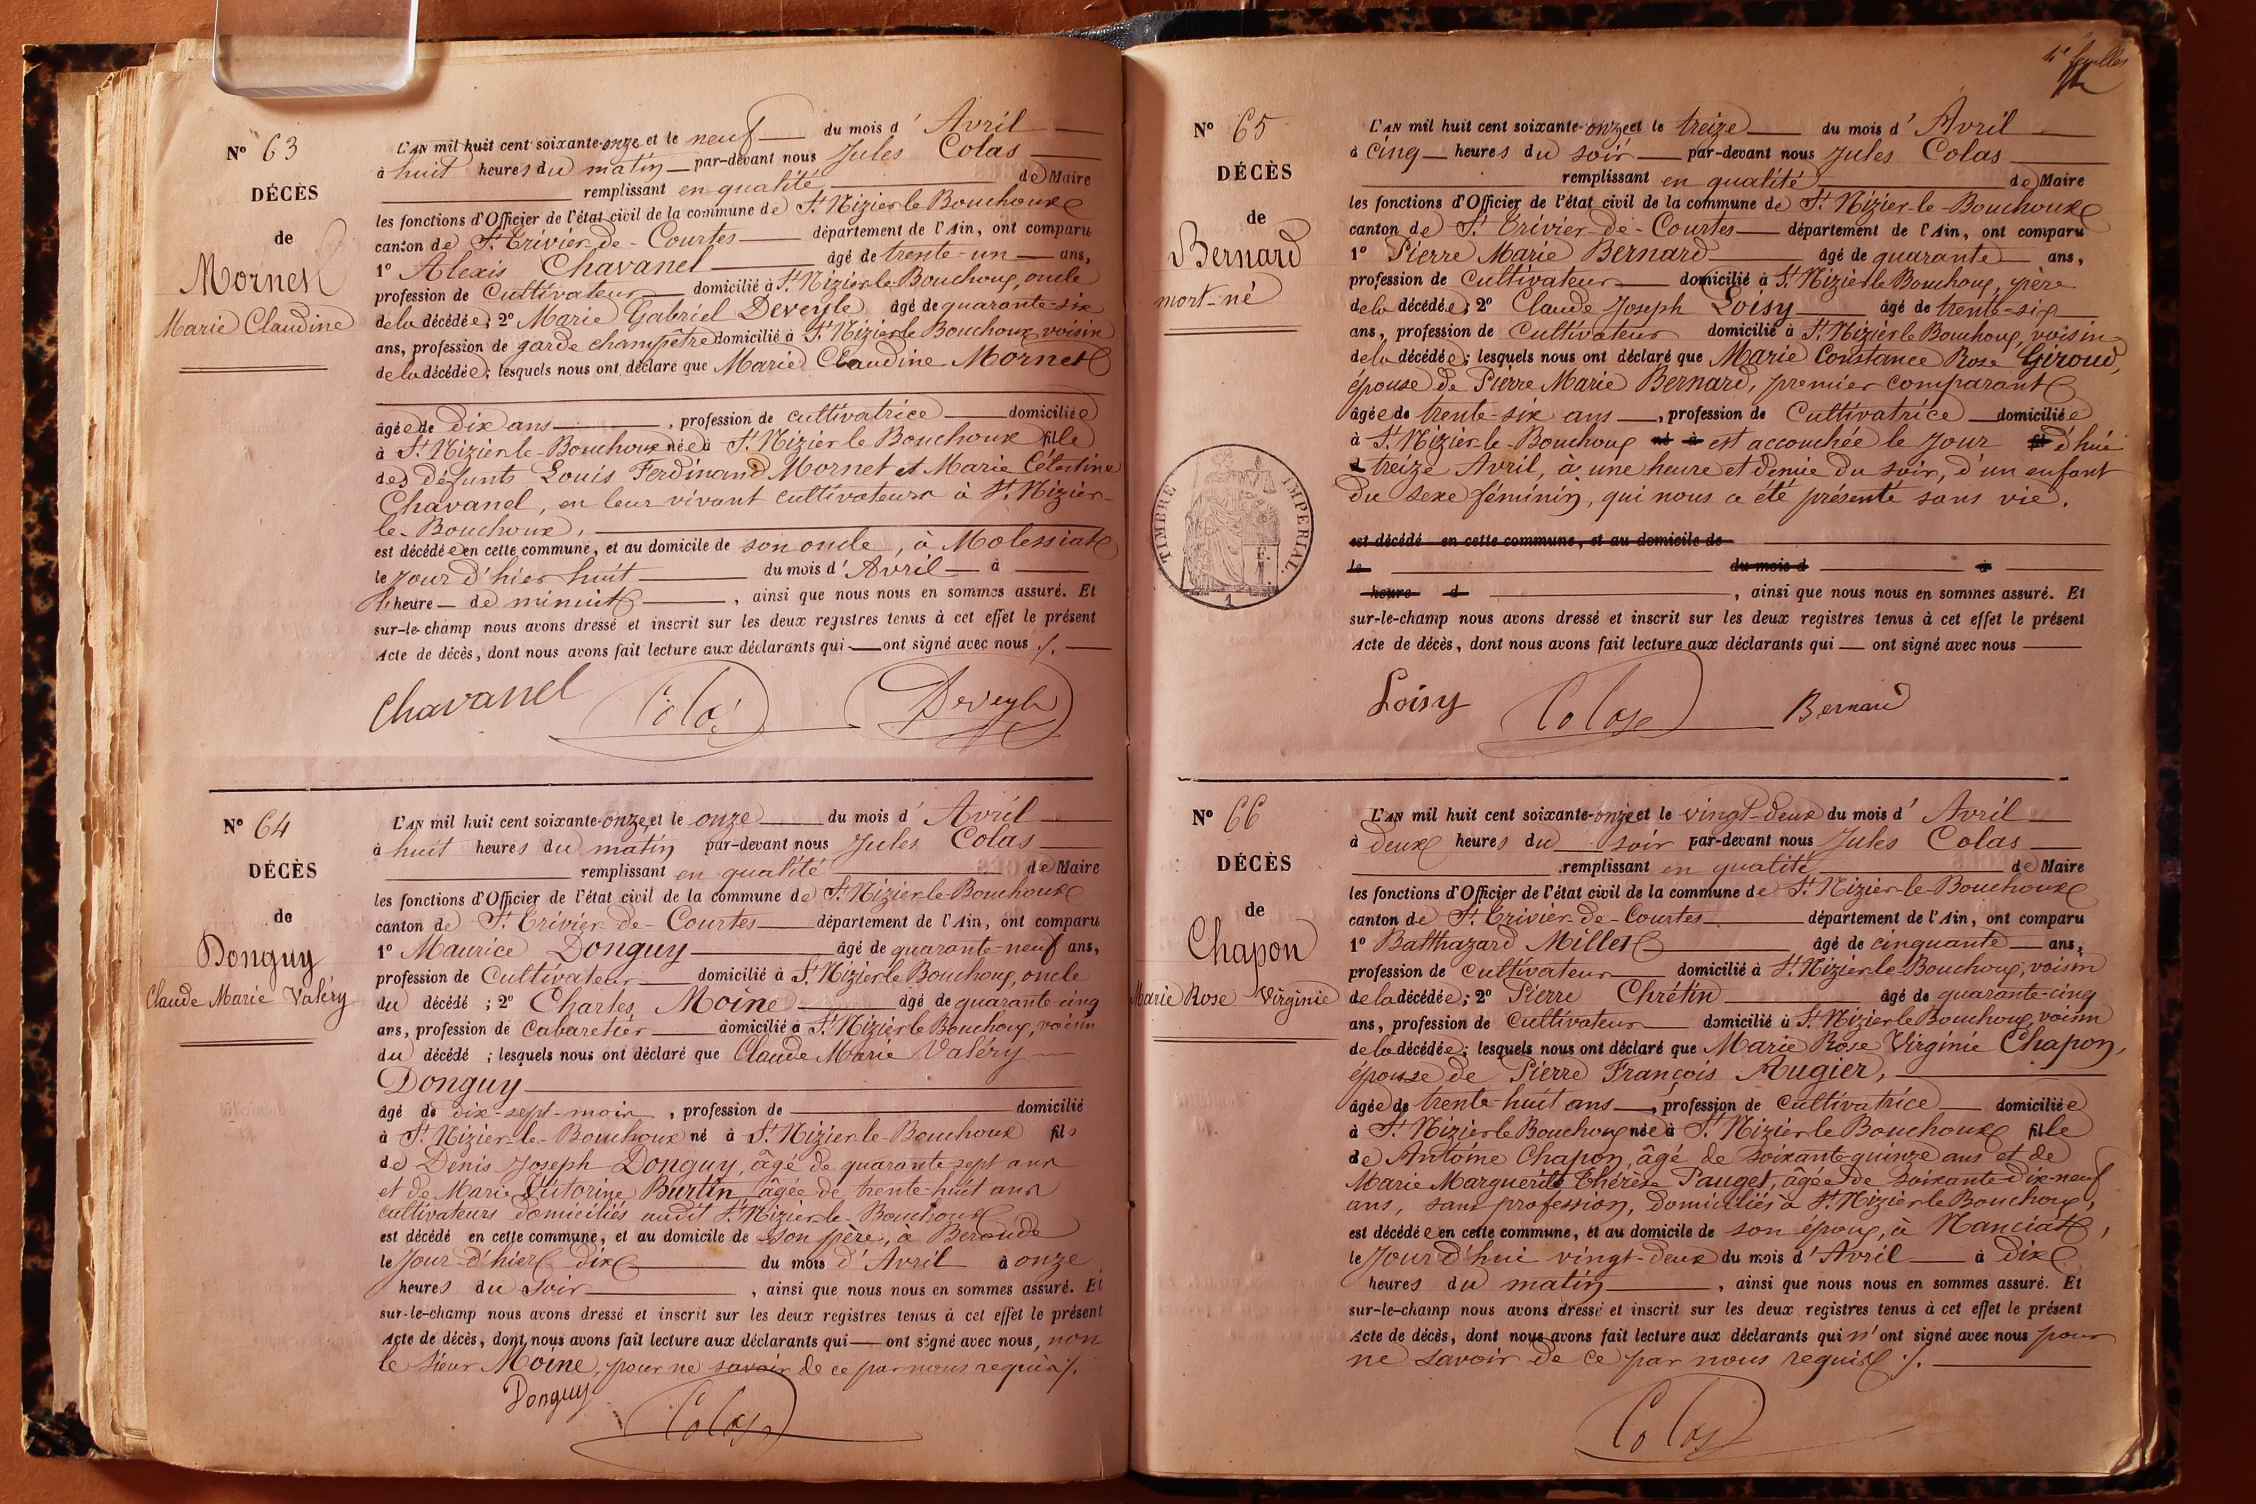 N° 63
DÉCÈS
de
Mornet
Marie Claudine
L'AN mil huit cent soixante-onze et le neuf du mois d' Avril
à huit heures du matin par-devant nous Jules Colas
remplissant en qualité de Maire
les fonctions d'Officier de l'état civil de la commune de St Nizier le Bouchoux
canton de St Trivier-de-Courtes département de l'Ain, ont comparu
1° Alexis Chavanel âgé de trente-un ans,
profession de Cultivateur domicilié à St Nizier le Bouchoux, oncle
de la décédée; 2° Marie Gabriel Deveyle âgé de quarante-six
ans, profession de garde champêtre domicilié à St Nizier le Bouchoux voisin
de la décédée; lesquels nous ont déclaré que Marie Claudine Mornet
âgée de dix ans, profession de cultivatrice domiciliée
à St Nizier-le-Bouchoux née à St Nizier le Bouchoux fille
des défunts Louis Ferdinand Mornet et Marie Célestine
Chavanel, en leur vivant cultivateurs à St Nizier-
le-Bouchoux,
est décédée en cette commune, et au domicile de son oncle, à Molessiat
le jour d'hier huit du mois d' Avril à
heure de minuit, ainsi que nous nous en sommes assuré. Et
sur-le-champ nous avons dressé et inscrit sur les deux registres tenus à cet effet le présent
Acte de décès, dont nous avons fait lecture aux déclarants qui ont signé avec nous ./.
Chavanel Colas Deveyle
N° 64
DÉCÈS
de
Donguy
Claude Marie Valéry
L'AN mil huit cent soixante-onze et le onze du mois d' Avril
à huit heures du matin par-devant nous Jules Colas
remplissant en qualité de Maire
les fonctions d'Officier de l'état civil de la commune de St Nizier le Bouchoux
canton de St Trivier-de-Courtes département de l'Ain, ont comparu
1° Maurice Donguy âgé de quarante-neuf ans,
profession de Cultivateur domicilié à St Nizier le Bouchoux, oncle
du décédé; 2° Charles Moine âgé de quarante-cinq
ans, profession de Cabaretier domicilié à St Nizier le Bouchoux, voisin
du décédé; lesquels nous ont déclaré que Claude Marie Valéry
Donguy
âgé de dix-sept-mois, profession de domicilié
à St Nizier-le-Bouchoux né à St Nizier-le-Bouchoux fils
de Denis Joseph Donguy, âgé de quarante sept ans
et de Marie Victorine Burtin, âgée de trente-huit ans
cultivateurs domiciliés audit St Nizier-le-Bouchoux
est décédé en cette commune, et au domicile de son père, à Beroude
le jour d'hier dix du mois d' Avril à onze
heures du soir, ainsi que nous nous en sommes assuré. Et
sur-le-champ nous avons dressé et inscrit sur les deux registres tenus à cet effet le présent
Acte de décès, dont nous avons fait lecture aux déclarants qui ont signé avec nous, non
le Sieur Moine, pour ne savoir de ce par nous requis ./.
Donguy Colas
N° 65
DÉCÈS
de
Bernard
mort-né
TIMBRE IMPERIAL.
1
L'AN mil huit cent soixante-onze et le treize du mois d' Avril
à cinq heures du soir par-devant nous Jules Colas
remplissant en qualité de Maire
les fonctions d'Officier de l'état civil de la commune de St Nizier-le-Bouchoux
canton de St Trivier-de-Courtes département de l'Ain, ont comparu
1° Pierre Marie Bernard âgé de quarante ans,
profession de Cultivateur domicilié à St Nizier le Bouchoux, père
de la décédée; 2° Claude Joseph Loisy âgé de trente-six
ans, profession de Cultivateur domicilié à St Nizier le Bouchoux, voisin
de la décédée; lesquels nous ont déclaré que Marie Constance Rose Giroud,
épouse de Pierre Marie Bernard, premier comparant
âgée de trente-six ans, profession de Cultivatrice domiciliée
à St Nizier-le-Bouchoux né à est accouchée le jour fil d'hui
d treize Avril, à une heure et demie du soir, d'un enfant
du sexe féminin, qui nous a été présenté sans vie.
est décédé en cette commune, et au domicile de
le du mois d à
heure d, ainsi que nous nous en sommes assuré. Et
sur-le-champ nous avons dressé et inscrit sur les deux registres tenus à cet effet le présent
Acte de décès, dont nous avons fait lecture aux déclarants qui ont signé avec nous
Loisy Colas Bernard
N° 66
DÉCÈS
de
Chapon
Marie Rose Virginie
L'AN mil huit cent soixante-onze et le vingt-deux du mois d' Avril
à deux heures du soir par-devant nous Jules Colas
remplissant en qualité de Maire
les fonctions d'Officier de l'état civil de la commune de St Nizier-le-Bouchoux
canton de St Trivier-de-Courtes département de l'Ain, ont comparu
1° Balthazard Millet âgé de cinquante ans,
profession de Cultivateur domicilié à St Nizier-le-Bouchoux, voisin
de la décédée; 2° Pierre Chrétin âgé de quarante-cinq
ans, profession de Cultivateur domicilié à St Nizier le Bouchoux voisin
de la décédée; lesquels nous ont déclaré que Marie Rose Virginie Chapon,
épouse de Pierre François Augier,
âgée de trente-huit ans, profession de Cultivatrice domiciliée
à St Nizier le Bouchoux née à St Nizier le Bouchoux fille
de Antoine Chapon, âgé de soixante quinze ans et de
Marie Marguerite Thérèse Pauget, âgée de soixante-dix-neuf
ans, sans profession, domiciliés à St Nizier le Bouchoux,
est décédée en cette commune, et au domicile de son époux, à Nanciat,
le jour d'hui vingt-deux du mois d' Avril à dix
heures du matin, ainsi que nous nous en sommes assuré. Et
sur-le-champ nous avons dressé et inscrit sur les deux registres tenus à cet effet le présent
Acte de décès, dont nous avons fait lecture aux déclarants qui n'ont signé avec nous pour
ne savoir de ce par nous requis ./.
Colas